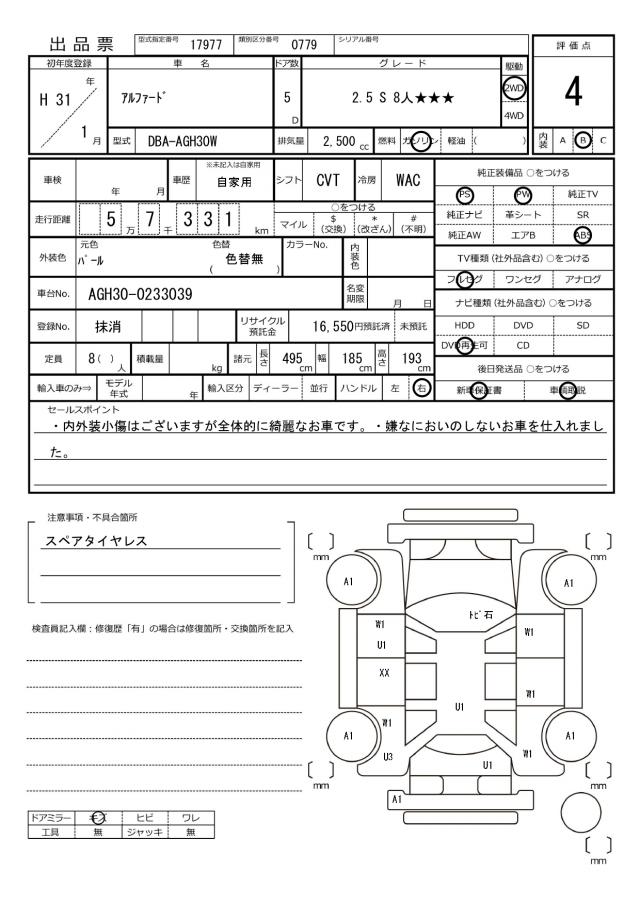 出品票 型式指定番号 17977 類別区分番号 0779 シリアル番号
評価点
4
初年度登録 車名 ドア数 グレード 駆動
H 31 年 1 月
アルファード 5 D 2.5 S 8人★★★ 2WD 4WD
型式 DBA-AGH30W 排気量 2,500 cc 燃料 ガソリン 軽油 ( ) 内装 A B C
車検 年 月 車歴 ※未記入は自家用 自家用 シフト CVT 冷房 WAC
純正装備品 ○をつける
PS PW 純正TV
純正ナビ 革シート SR
純正AW エアB ABS
走行距離 5 万 7 千 3 3 1 km ○をつける マイル $ (交換) * (改ざん) # (不明)
外装色 元色 パール 色替 色替無 ( ) カラーNo. 内装色
TV種類 (社外品含む) ○をつける
フルセグ ワンセグ アナログ
車台No. AGH30-0233039 名変期限 月 日
ナビ種類 (社外品含む) ○をつける
HDD DVD SD
DVD再生可 CD
登録No. 抹消 リサイクル預託金 16,550円預託済 未預託
定員 8( ) 人 積載量 kg 諸元 長さ 495 cm 幅 185 cm 高さ 193 cm
後日発送品 ○をつける
新車保証書 車輌取説
輸入車のみ⇒ モデル年式 年 輸入区分 ディーラー 並行 ハンドル 左 右
セールスポイント
・内外装小傷はございますが全体的に綺麗なお車です。・嫌なにおいのしないお車を仕入れまし
た。
注意事項・不具合箇所
スペアタイヤレス
検査員記入欄:修復歴「有」の場合は修復箇所・交換箇所を記入
〔 〕 mm 〔 〕 mm
A1 A1
トビ石
W1 W1
U1
XX
W1
U1
W1
A1 A1
U3 U1 W1
〔 〕 mm 〔 〕 mm
A1
〔 〕 mm
ドアミラー キズ ヒビ ワレ
工具 無 ジャッキ 無